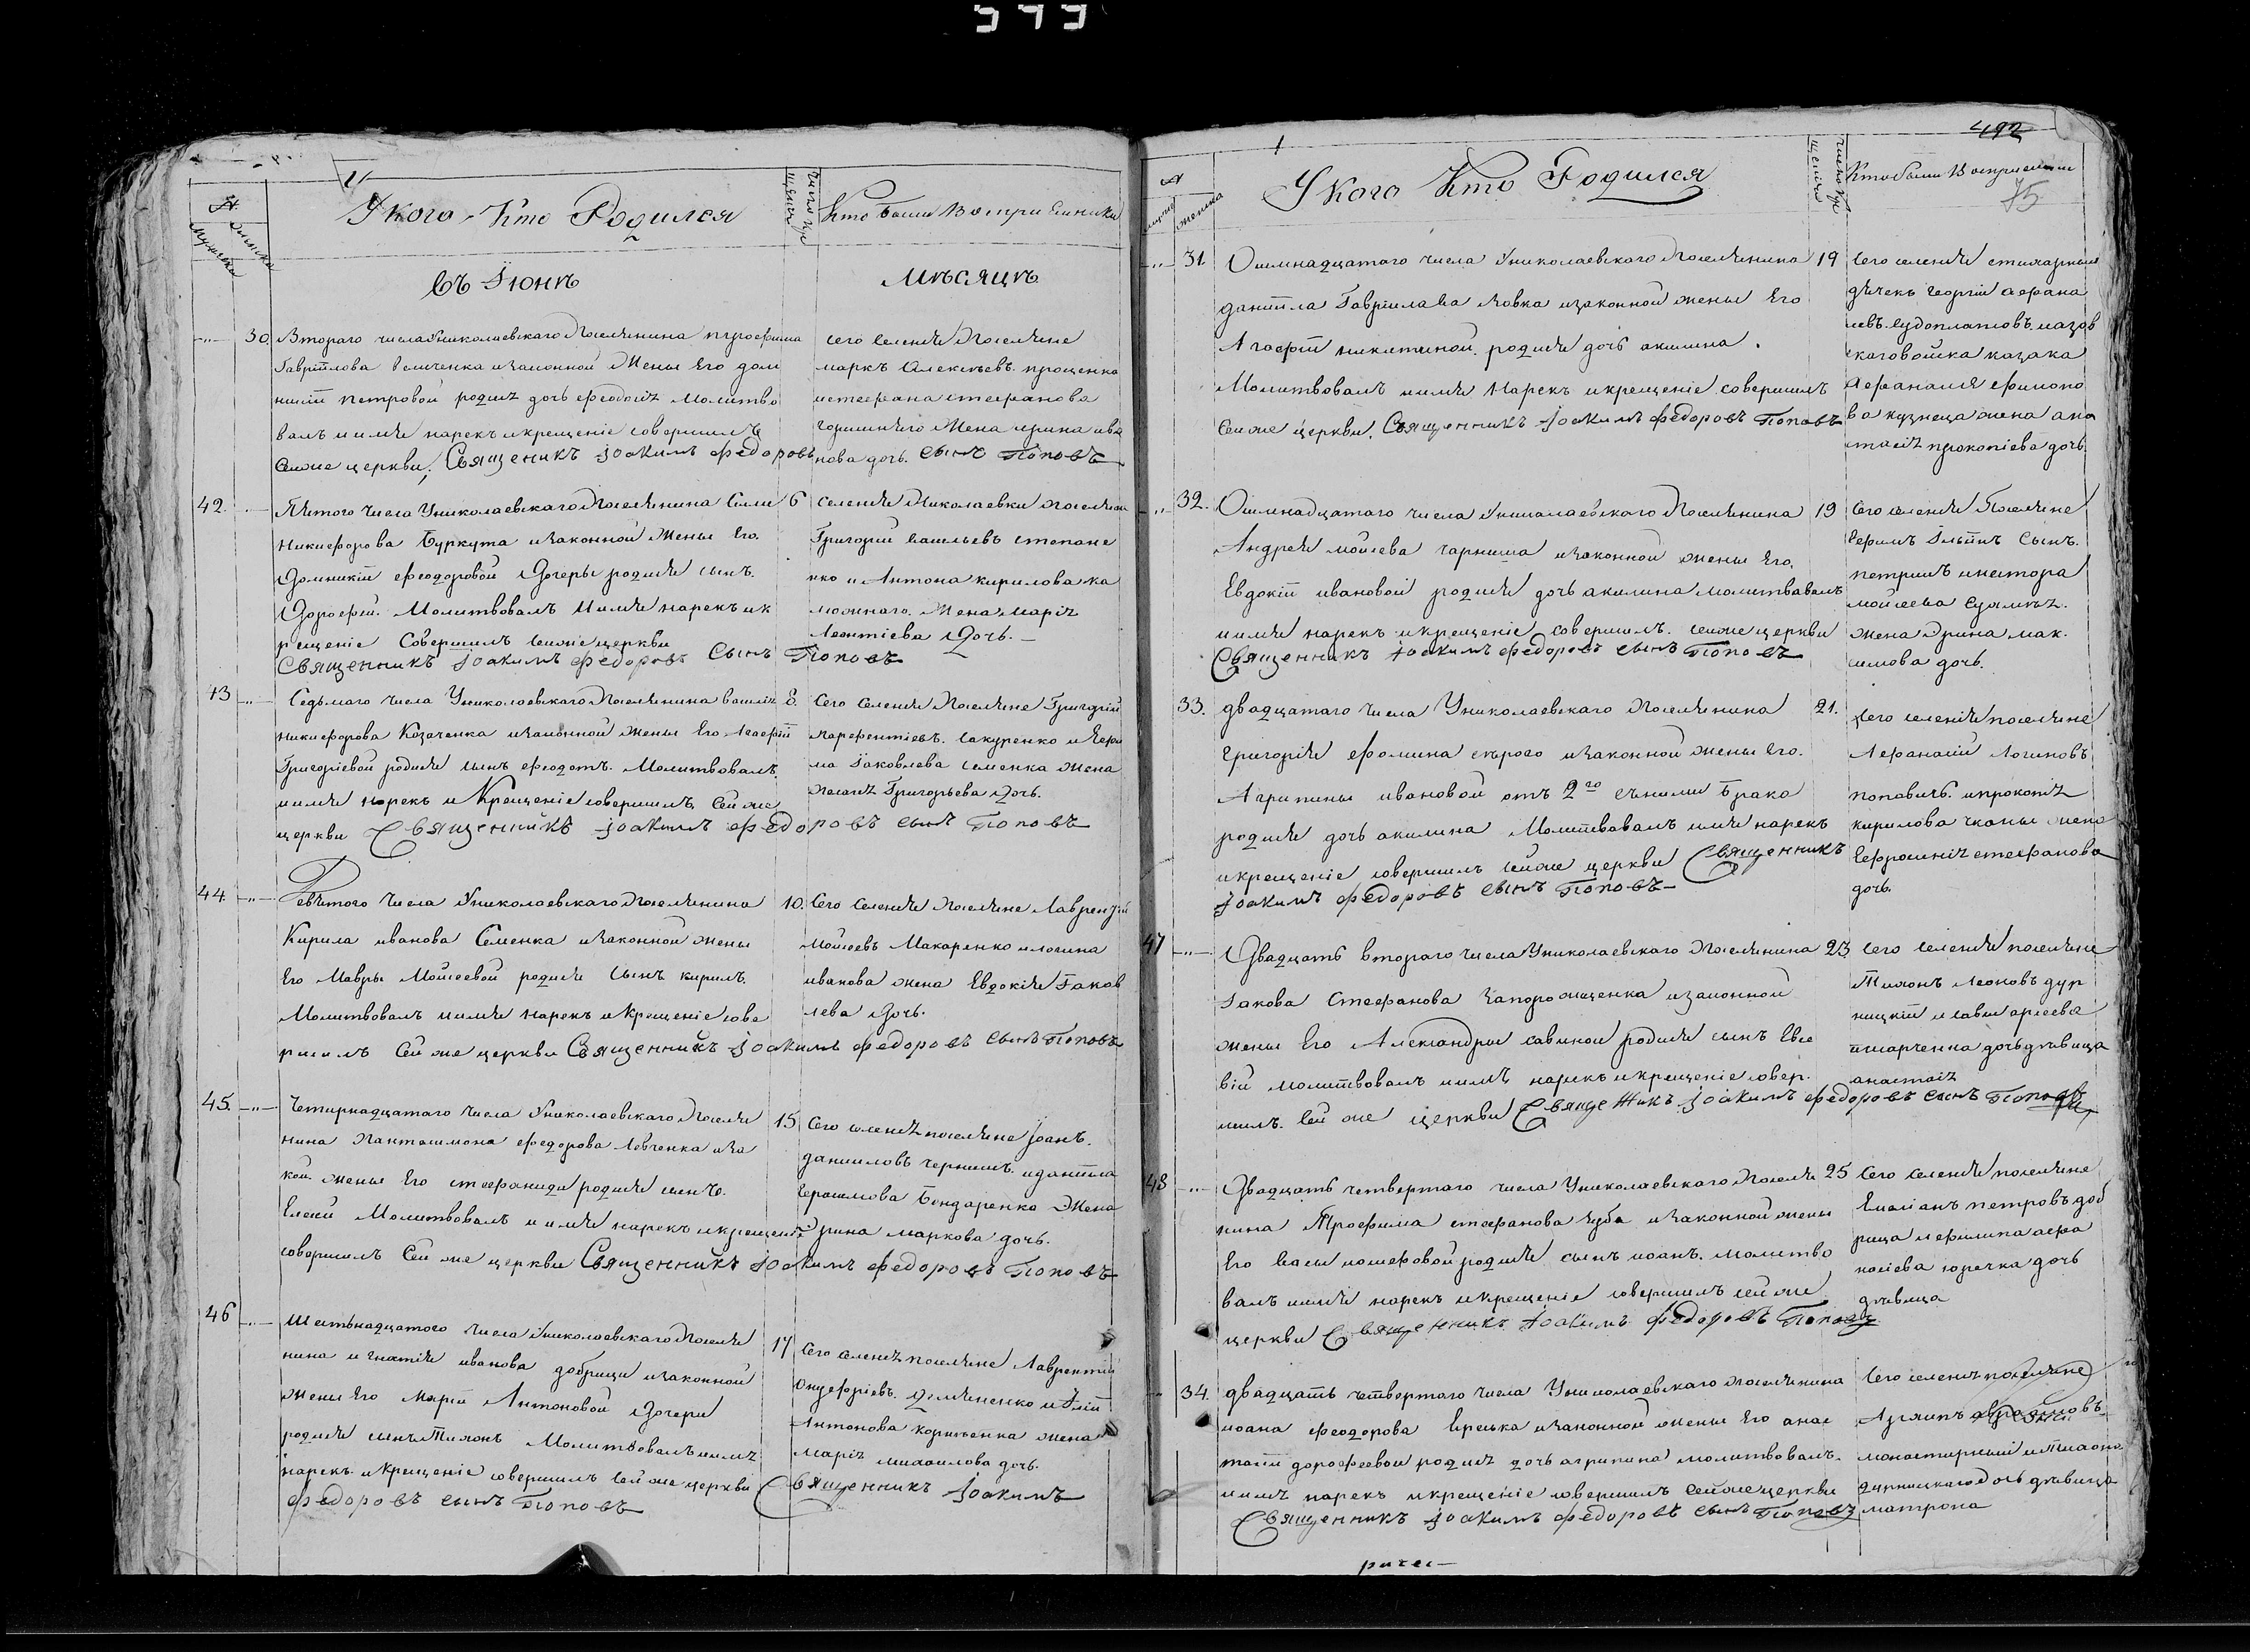 У кого Кто Родился
Кто были Восприемники
въ Іюнѣ
мѣсяцѣ
30. Втораго числа Униколаевскаго Поселянина
Гаврїилова изаконной Жены Его дом
никїи петровой родилъ дочь феодосіꙗ Молитво
валъ иимя нарекъ икрещеніе совершилъ
сеяже церкви, Священикъ Іоакимъ федоровъ сынъ Поповъ
сего селенія Поселяне
маркъ Алексѣевъ проценко
истефана стефанова
Жена ирина ива
нова дочь.
42. Пятого числа Униколаевскаго Поселянина Силы 6
Никифорова Буркута изаконной Жены Его
Домникїи феодоровой Дочеры родися сынъ
Дорофей. Молитвовалъ Иимя нарекъ ик
рещеніе Совершилъ сеяже церкви
Священникъ Іоакимъ федоровъ Сынъ Поповъ
селенія Николаевки поселяне
Григорій васильевъ степане
нко и Антона кирилова ка
можнаго Жена Марія
Леонтіева Дочь.
43 Седьмаго числа Униколаевскаго Поселянина василія 8.
никифорова Козаченка изаконной Жены Его Агафїи
Григоріевой родися сынъ феодотъ. Молитвовалъ
иимя нарекъ и Крещеніе совершилъ Сей же
церкви Священникъ Іоакимъ федоровъ сынъ Поповъ
Сего Селенія Поселяне Григорій
парфентіевъ сакуренко и Ефи
ма Іаковлева семенка жена
Григорьева Дочь.
44 Девятого числа Униколаевскаго поселянина 10.
Кирила иванова Семенка изаконной жены
Его Мавры Мойсеевой родися Сынъ кирилъ
Молитвовалъ иимя нарекъ и Крещеніе сове
ршилъ Сей же церкви Священникъ Іоакимъ федоровъ сынъ Поповъ
Сего Селенія поселяне Лаврентій
Мойсеевъ Макаренко илогина
иванова жена Евдокія Іаков
лева Дочь.
45. Четырнадцатаго числа Униколаевскаго Поселя 15
нина Пантелимона федорова Левченка иза
кон. жены Его стефаниды родися сынъ
Елисей Молитвовалъ иимя нарекъ икрещеніе
совершилъ Сей же церкви Священникъ Іоакимъ федоровъ Поповъ
Сего селенія поселяне Іоанъ
даниловъ чернышъ иданїила
Герасимова Бондаренка Жена
Ірина маркова дочь.
46 Шестьнадцатого числа Униколаевскаго Поселя 17
нина игнатія иванова добрици изаконной
жены Его Маріи Антоновой Дочери
родися сынъ Тихонъ Молитвовалъ иимя
нарекъ икрещеніе совершилъ сей же церкви Священникъ Іоакимъ
федоровъ сынъ Поповъ
Сего селенія поселяне Лаврентій
Онуфріевъ и Іліи
Антонова корнѣенка жена
марія михаилова дочь.
492
75
У кого Кто Родился
Кто были Восприемники
31 Осимнадцатаго числа Униколаевскаго Поселянина 19
данїила Гаврїилава изаконной жены Его
Агафїи никитиной. родися дочь акилина.
Молитвовалъ иимя Нарекъ икрещеніе совершилъ
сеяже церкви. Священникъ Іоакимъ федоровъ Поповъ
Сего селенія стихарный
дячекъ георгій афана
сѣевъ судоплатовъ иазов
скаго войска казака
Афанасія филипо
ва кузнеца жена ана
стасія прокопіева дочь.
32. Осимнадцатаго числа Униколаевскаго Поселянина 19
Андрея мойсева чарныша изаконной жены Его
Евдокїи ивановой родися дочь акилина молитвавалъ
иимя нарекъ икрещеніе совершилъ сеяже церкви
Священникъ Іоакимъ федоровъ сынъ Поповъ
Сего селенія Поселяне
Ефимъ Ільинъ Сынъ
петришъ инестора
мойсеева
жена Ірина мак
симова дочь.
33. двадцатаго числа Униколаевскаго поселянина 21.
григорія фомина сѣрого изаконной жены Его
Агрипины ивановой отъ 2го сънимъ брака
родися дочь акилина Молитвавалъ имя нарекъ
икрещеніе совершилъ сейже церкви Священникъ
Іоакимъ федоровъ сынъ Поповъ
Сего селенія поселяне
Афанасій Логиновъ
поповичъ ипрокопія
кирилова жена
Ефросинія стефанова
дочь.
47 Двадцать втораго числа Униколаевскаго поселянина 23
Іакова Стефанова Запорожченка изаконной
жены Его Александры савиной родися сынъ Евсе
вій молитвовалъ иимя нарекъ икрещеніе совер
шилъ. Сей же церкви Священикъ Іоакимъ федоровъ сынъ Поповъ
Сего селенія поселяне
Тихонъ Леоновъ дур
ницкій исавы
дочь дѣвица
анастасія
48 Двадцать четвертаго числа Униколаевскаго Поселя 25
нина Трофима стефанова зуба изаконной жены
Его Васы иосифовой родися сынъ иоанъ. молитво
валъ иимя нарекъ икрещеніе совершилъ сей же
церкви Священникъ Іоакимъ федоровъ Поповъ
Сего селенія поселяне
Емеліанъ петровъ доб
рица ифилипа афа
насіева юречка дочь
дѣвица
34. двадцать четвертаго числа Униколаевскаго поселянина
иоана феодорова изаконной жены Его анас
тасїи дорофеевой родися дочь агрипина молитвовалъ
иимя нарекъ икрещеніе совершилъ сейжецеркви
Священникъ Іоакимъ федоровъ сынъ Поповъ
Сего селенія поселяне
монастирный итихона
дурницкаго дочь дѣвица
матрона